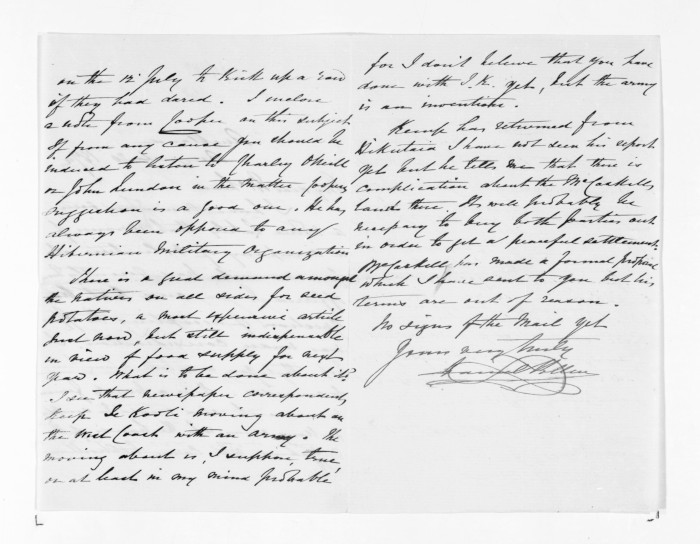 on the 12 July to Kick up a row
if they had dared. I enclose
a note from Cooper on this subject.
If from any cause you should be
induced to listen to Charley O'Neill
or John Lundon in the matter Coopers
suggestion is a good one. He has
always been opposed to any
Hibernian Military Organization
There is a great demand amongst
the natives on all sides for seed
potatoes, a most expensive article
just now, but still indispensable
in view of food supply for next
year. What is to be done about it?
I see that newspaper correspondents
keep Te Kooti moving about on
the West Coast with an army. The
moving about is, I suppose, true
or at least in my mind probable!
for I don't believe that you have
done with T.K. yet, but the army
is an invention.
Kemp has returned from
Hikutaia I have not seen his report
yet but he tells me that there is
complication about the McCaskells
lands there. It will probably be
necessary to buy both parties out
in order to get a peaceful settlement.
McCaskell has made a formal proposal
which I have sent to you but his
terms are out of reason.
No signs of the Mail yet
Yours very truly
Daniel Pollen